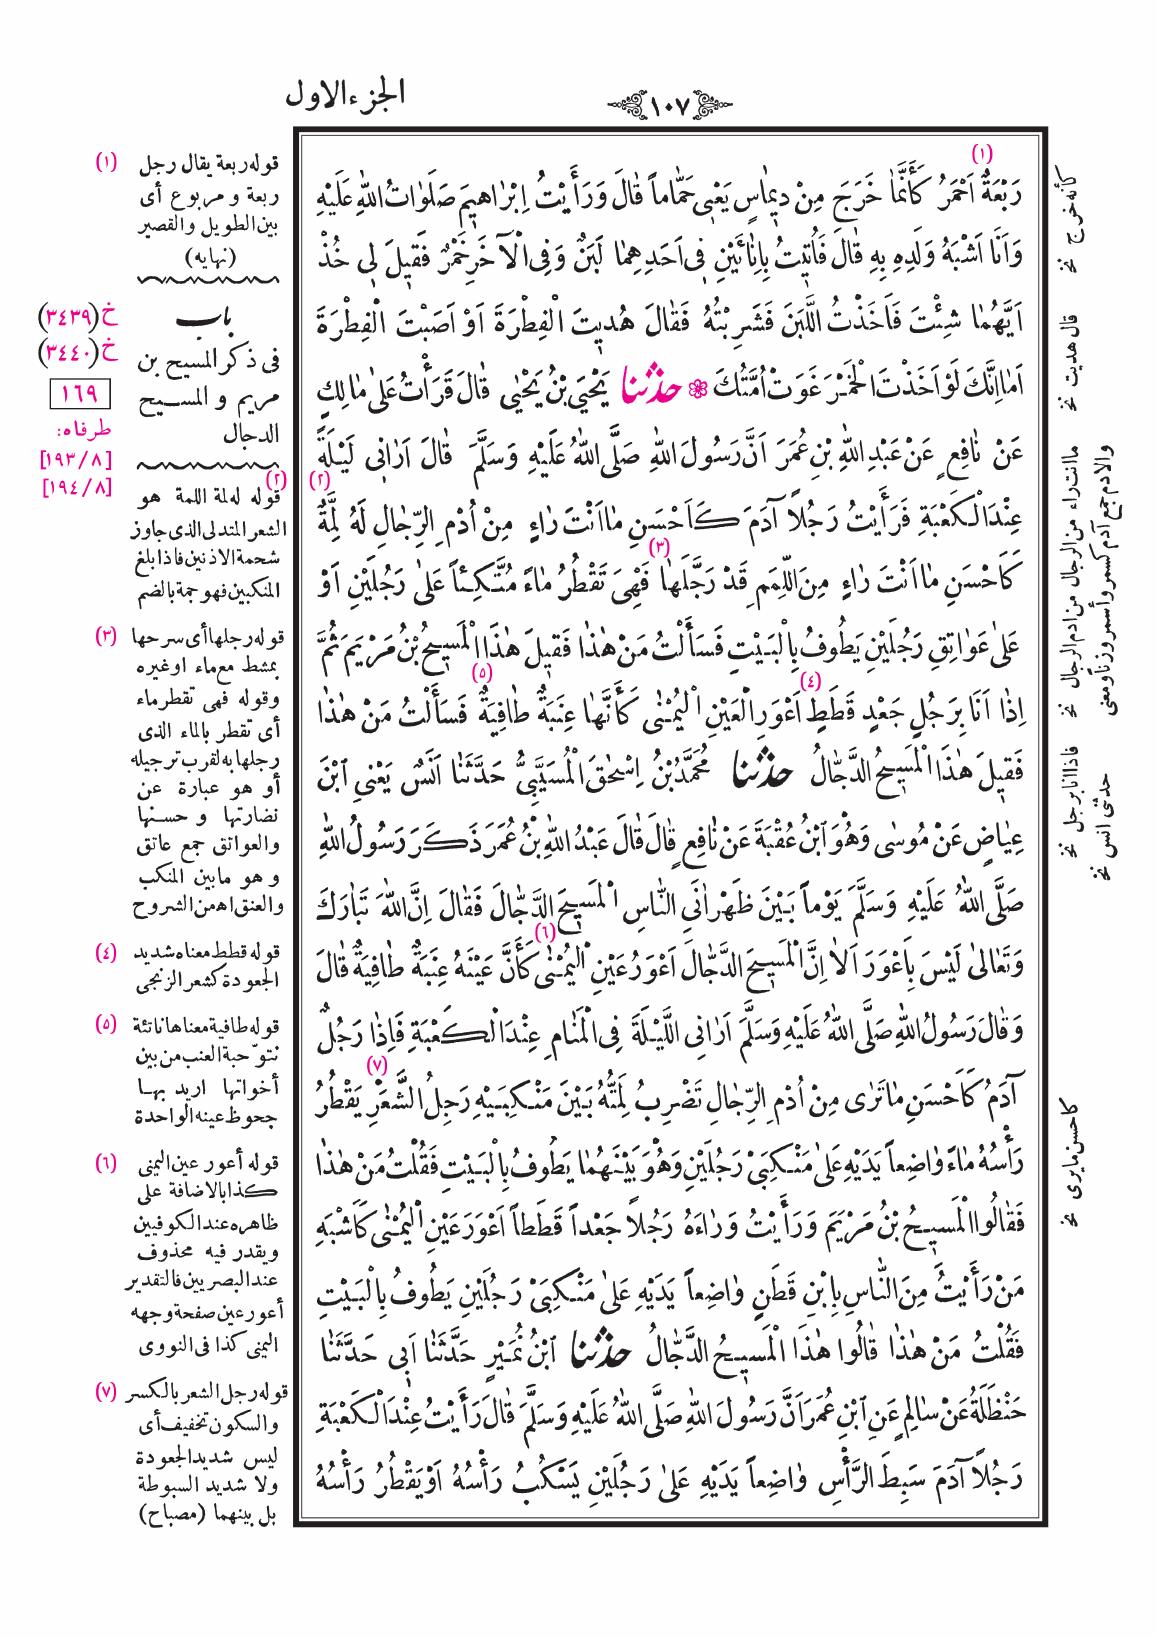 ١٠٧
الجزء الاول
(١)
رَبْعَةٌ اَحْمَرُ كَأَنَّمَا خَرَجَ مِنْ دِيمَاسٍ يَعْنِى حَمَّاماً قَالَ وَرَأَيْتُ اِبْرَاهِيمَ صَلَوَاتُ اللهِ عَلَيْهِ
وَاَنَا اَشْبَهُ وَلَدِهِ بِهِ قَالَ فَاُتِيتُ بِاِنَائَيْنِ فِى اَحَدِهِمَا لَبَنٌ وَفِى الْآخَرِ خَمْرٌ فَقِيلَ لِى خُذْ
اَيَّهُمَا شِئْتَ فَاَخَذْتُ اللَّبَنَ فَشَرِبْتُهُ فَقَالَ هُدِيتَ الْفِطْرَةَ اَوْ اَصَبْتَ الْفِطْرَةَ
اَمَا اِنَّكَ لَوْ اَخَذْتَ الْخَمْرَ غَوَتْ اُمَّتُكَ ❁ حدثنا يَحْيَى بْنُ يَحْيٰى قَالَ قَرَأْتُ عَلىٰ مَالِكٍ
عَنْ نَافِعٍ عَنْ عَبْدِ اللهِ بْنِ عُمَرَ اَنَّ رَسُولَ اللهِ صَلَّى اللهُ عَلَيْهِ وَسَلَّمَ قَالَ اَرَانِى لَيْلَةً
(٢)
عِنْدَ الْكَعْبَةِ فَرَأَيْتُ رَجُلاً آدَمَ كَاَحْسَنِ مَا اَنْتَ رَاءٍ مِنْ اُدْمِ الرِّجَالِ لَهُ لِمَّةٌ
(٣)
كَاَحْسَنِ مَا اَنْتَ رَاءٍ مِنَ اللِّمَمِ قَدْ رَجَّلَهَا فَهِىَ تَقْطُرُ مَاءً مُتَّكِئاً عَلىٰ رَجُلَيْنِ اَوْ
عَلىٰ عَوَاتِقِ رَجُلَيْنِ يَطُوفُ بِالْبَيْتِ فَسَأَلْتُ مَنْ هٰذَا فَقِيلَ هٰذَا الْمَسِيحُ بْنُ مَرْيَمَ ثُمَّ
(٤) (٥)
اِذَا اَنَا بِرَجُلٍ جَعْدٍ قَطَطٍ اَعْوَرِ الْعَيْنِ الْيُمْنٰى كَأَنَّهَا عِنَبَةٌ طَافِيَةٌ فَسَأَلْتُ مَنْ هٰذَا
فَقِيلَ هٰذَا الْمَسِيحُ الدَّجَّالُ حدثنا مُحَمَّدُ بْنُ اِسْحٰقَ الْمُسَيَّبِىُّ حَدَّثَنَا اَنَسٌ يَعْنِى ابْنَ
عِيَاضٍ عَنْ مُوسَى وَهُوَ ابْنُ عُقْبَةَ عَنْ نَافِعٍ قَالَ قَالَ عَبْدُ اللهِ بْنُ عُمَرَ ذَكَرَ رَسُولُ اللهِ
صَلَّى اللهُ عَلَيْهِ وَسَلَّمَ يَوْماً بَيْنَ ظَهْرَانَىِ النَّاسِ الْمَسِيحَ الدَّجَّالَ فَقَالَ اِنَّ اللهَ تَبَارَكَ
(٦)
وَتَعَالىٰ لَيْسَ بِاَعْوَرَ اَلاَ اِنَّ الْمَسِيحَ الدَّجَّالَ اَعْوَرُ عَيْنِ الْيُمْنٰى كَأَنَّ عَيْنَهُ عِنَبَةٌ طَافِيَةٌ قَالَ
وَقَالَ رَسُولُ اللهِ صَلَّى اللهُ عَلَيْهِ وَسَلَّمَ اَرَانِى اللَّيْلَةَ فِى الْمَنَامِ عِنْدَ الْكَعْبَةِ فَاِذَا رَجُلٌ
(٧)
آدَمُ كَاَحْسَنِ مَا تَرَى مِنْ اُدْمِ الرِّجَالِ تَضْرِبُ لِمَّتُهُ بَيْنَ مَنْكِبَيْهِ رَجِلُ الشَّعَرِ يَقْطُرُ
رَأْسُهُ مَاءً وَاضِعاً يَدَيْهِ عَلىٰ مَنْكِبَىْ رَجُلَيْنِ وَهُوَ بَيْنَهُمَا يَطُوفُ بِالْبَيْتِ فَقُلْتُ مَنْ هٰذَا
فَقَالُوا الْمَسِيحُ بْنُ مَرْيَمَ وَرَأَيْتُ وَرَاءَهُ رَجُلاً جَعْداً قَطَطاً اَعْوَرَ عَيْنِ الْيُمْنٰى كَاَشْبَهِ
مَنْ رَأَيْتُ مِنَ النَّاسِ بِابْنِ قَطَنٍ وَاضِعاً يَدَيْهِ عَلىٰ مَنْكِبَىْ رَجُلَيْنِ يَطُوفُ بِالْبَيْتِ
فَقُلْتُ مَنْ هٰذَا قَالُوا هٰذَا الْمَسِيحُ الدَّجَّالُ حدثنا ابْنُ نُمَيْرٍ حَدَّثَنَا اَبِى حَدَّثَنَا
حَنْظَلَةُ عَنْ سَالِمٍ عَنِ ابْنِ عُمَرَ اَنَّ رَسُولَ اللهِ صَلَّى اللهُ عَلَيْهِ وَسَلَّمَ قَالَ رَأَيْتُ عِنْدَ الْكَعْبَةِ
رَجُلاً آدَمَ سَبِطَ الرَّأْسِ وَاضِعاً يَدَيْهِ عَلىٰ رَجُلَيْنِ يَسْكُبُ رَأْسُهُ اَوْ يَقْطُرُ رَأْسُهُ
كأنه خرج نخ
قال هديت نخ
ما انت راء من الرجال من ادم الرجال نخ
والادم جمع آدم كسمر وأسمر وزناً ومعنى
فاذا انا برجل نخ
حدثنى انس نخ
كاحسن ما يرى نخ
(١) قوله ربعة يقال رجل
ربعة و مربوع أى
بين الطويل والقصير
(نهايه)
خ (٣٤٣٩)
خ (٣٤٤٠)
١٦٩
طرفاه:
[١٩٣/٨]
[١٩٤/٨]
باب
فى ذكر المسيح بن
مريم و المسيح
الدجال
(٢) قوله له لمة اللمة هو
الشعر المتدلى الذى جاوز
شحمة الاذنين فاذا بلغ
المنكبين فهو جمة بالضم
(٣) قوله رجلها أى سرحها
بمشط مع ماء او غيره
وقوله فهى تقطر ماء
أى تقطر بالماء الذى
رجلها به لقرب ترجيله
أو هو عبارة عن
نضارتها و حسنها
والعواتق جمع عاتق
و هو ما بين المنكب
والعنق اه من الشروح
(٤) قوله قطط معناه شديد
الجعودة كشعر الزنجى
(٥) قوله طافية معناها ناتئة
نتوّ حبة العنب من بين
أخواتها اريد بها
جحوظ عينه الواحدة
(٦) قوله أعور عين اليمنى
كذا بالاضافة على
ظاهره عند الكوفيين
ويقدر فيه محذوف
عند البصريين فالتقدير
أعور عين صفحة وجهه
اليمنى كذا فى النووى
(٧) قوله رجل الشعر بالكسر
والسكون تخفيف أى
ليس شديد الجعودة
ولا شديد السبوطة
بل بينهما (مصباح)